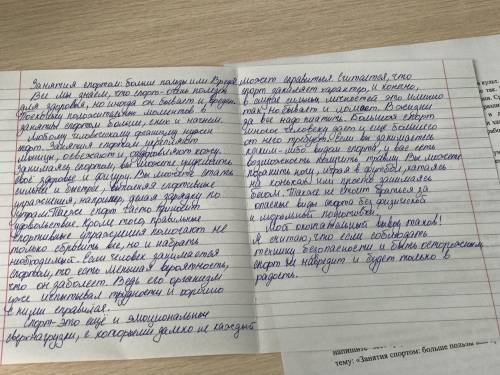 Занятия спортом: больше пользы или вреда?
Все мы знаем, что спорт - очень полезен
для здоровья, но иногда он бывает и вреден.
Поскольку положительных моментов в
занятии спортом больше, с них и начнем.
Любому человеческому организму нужен
спорт. Занятия спортом укрепляют
мышцы, освежают и оздоровляют кожу.
Занимаясь спортом, вы можете улучшить
своё здоровье и фигуру. Вы можете стать
сильнее и быстрее, выполняя спортивные
упражнения, например, делая зарядку по
утрам. Также спорт часто приносит
удовольствие. Кроме того правильные
спортивные упражнения помогают не
только сбросить вес, но и набрать
необходимый. Если человек занимается
спортом, то есть меньшая вероятность,
что он заболеет. Ведь его организм
уже испытывал трудности и хорошо
с ними справился.
Спорт - это ещё и эмоциональные
сверхнагрузки, с которыми далеко не каждый
может справиться. Считается, что
спорт закаляет характер, и конечно,
в случае сильных личностей это именно
так, но бывает и ломает. В жизни
за все надо платить. Большой спорт
многое человеку даёт и ещё большего
от него требует. Если вы занимаетесь
каким-либо видом спорта, у вас есть
возможность получить травму. Вы можете
поранить ногу, играя в футбол, катаясь
на коньках или просто занимаясь
бегом. Также не стоит браться за
опасные виды спорта без физической
и моральной подготовки.
Мой окончательный вывод таков:
Я считаю, что если соблюдать
технику безопасности и быть осторожным
спорт не навредит и будет только в
радость.
напишите
тему: «Занятия спортом: больше пользы или